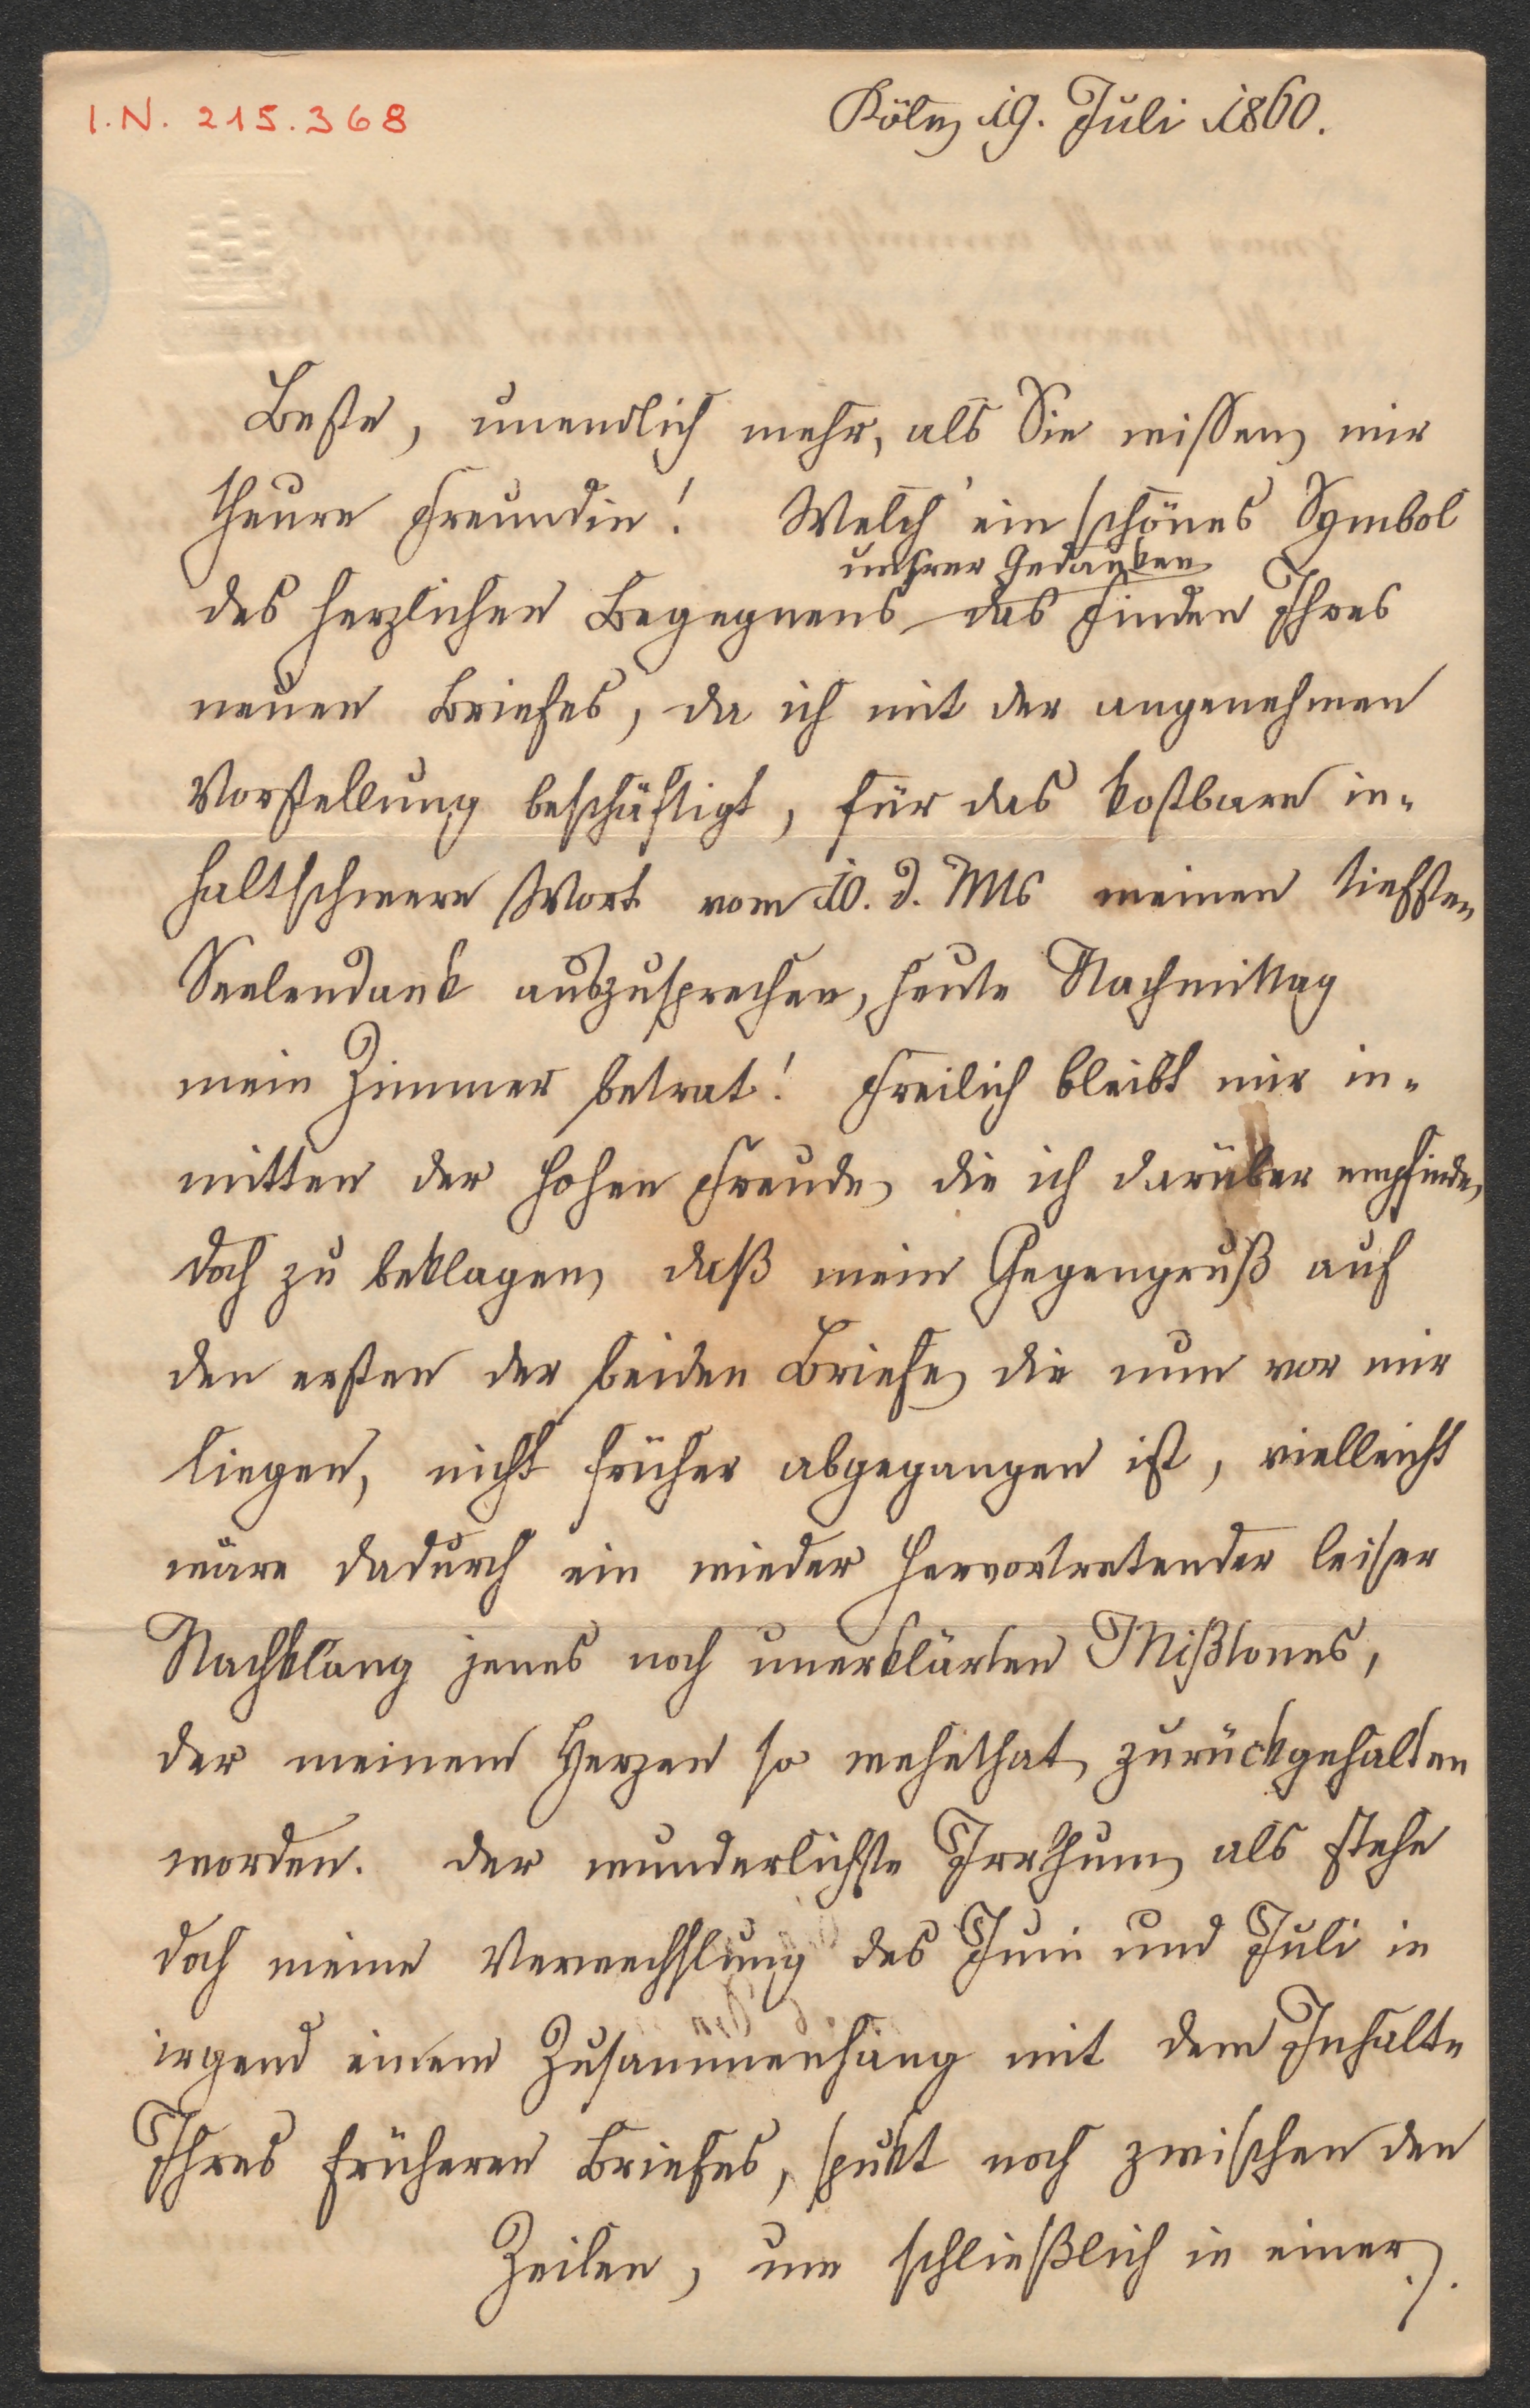 I.N. 215.368
Köln 19. Juli 1860.
Beste, unendlich mehr, als Sie wissen, mir
theure Freundin! Welch' ein schönes Symbol
unsrer Gedanken
des herzlichen Begegnens das Finden Ihres
neuen Briefes, da ich mit der angenehmen
Vorstellung beschäftigt, für das kostbare in-
haltschwere Wort vom 10. d. Mts meinen tiefsten
Seelendank auszusprechen, heute Nachmittag
mein Zimmer betrat! Freilich bleibt mir in-
mitten der hohen Freude, die ich darüber empfinde,
doch zu beklagen, daß mein Gegengruß auf
den ersten der beiden Briefe, die nun vor mir
liegen, nicht früher abgegangen ist, vielleicht
wäre dadurch ein wieder hervortretender leiser
Nachklang jenes noch unerklärten Mißtones,
der meinem Herzen so wehethat, zurückgehalten
worden. Der wunderlichste Irrthum, als stehe
doch meine Verwechslung des Juni und Juli in
irgend einem Zusammenhang mit dem Inhalte
Ihres früheren Briefes, spukt noch zwischen den
Zeilen, um schließlich in einer ./.